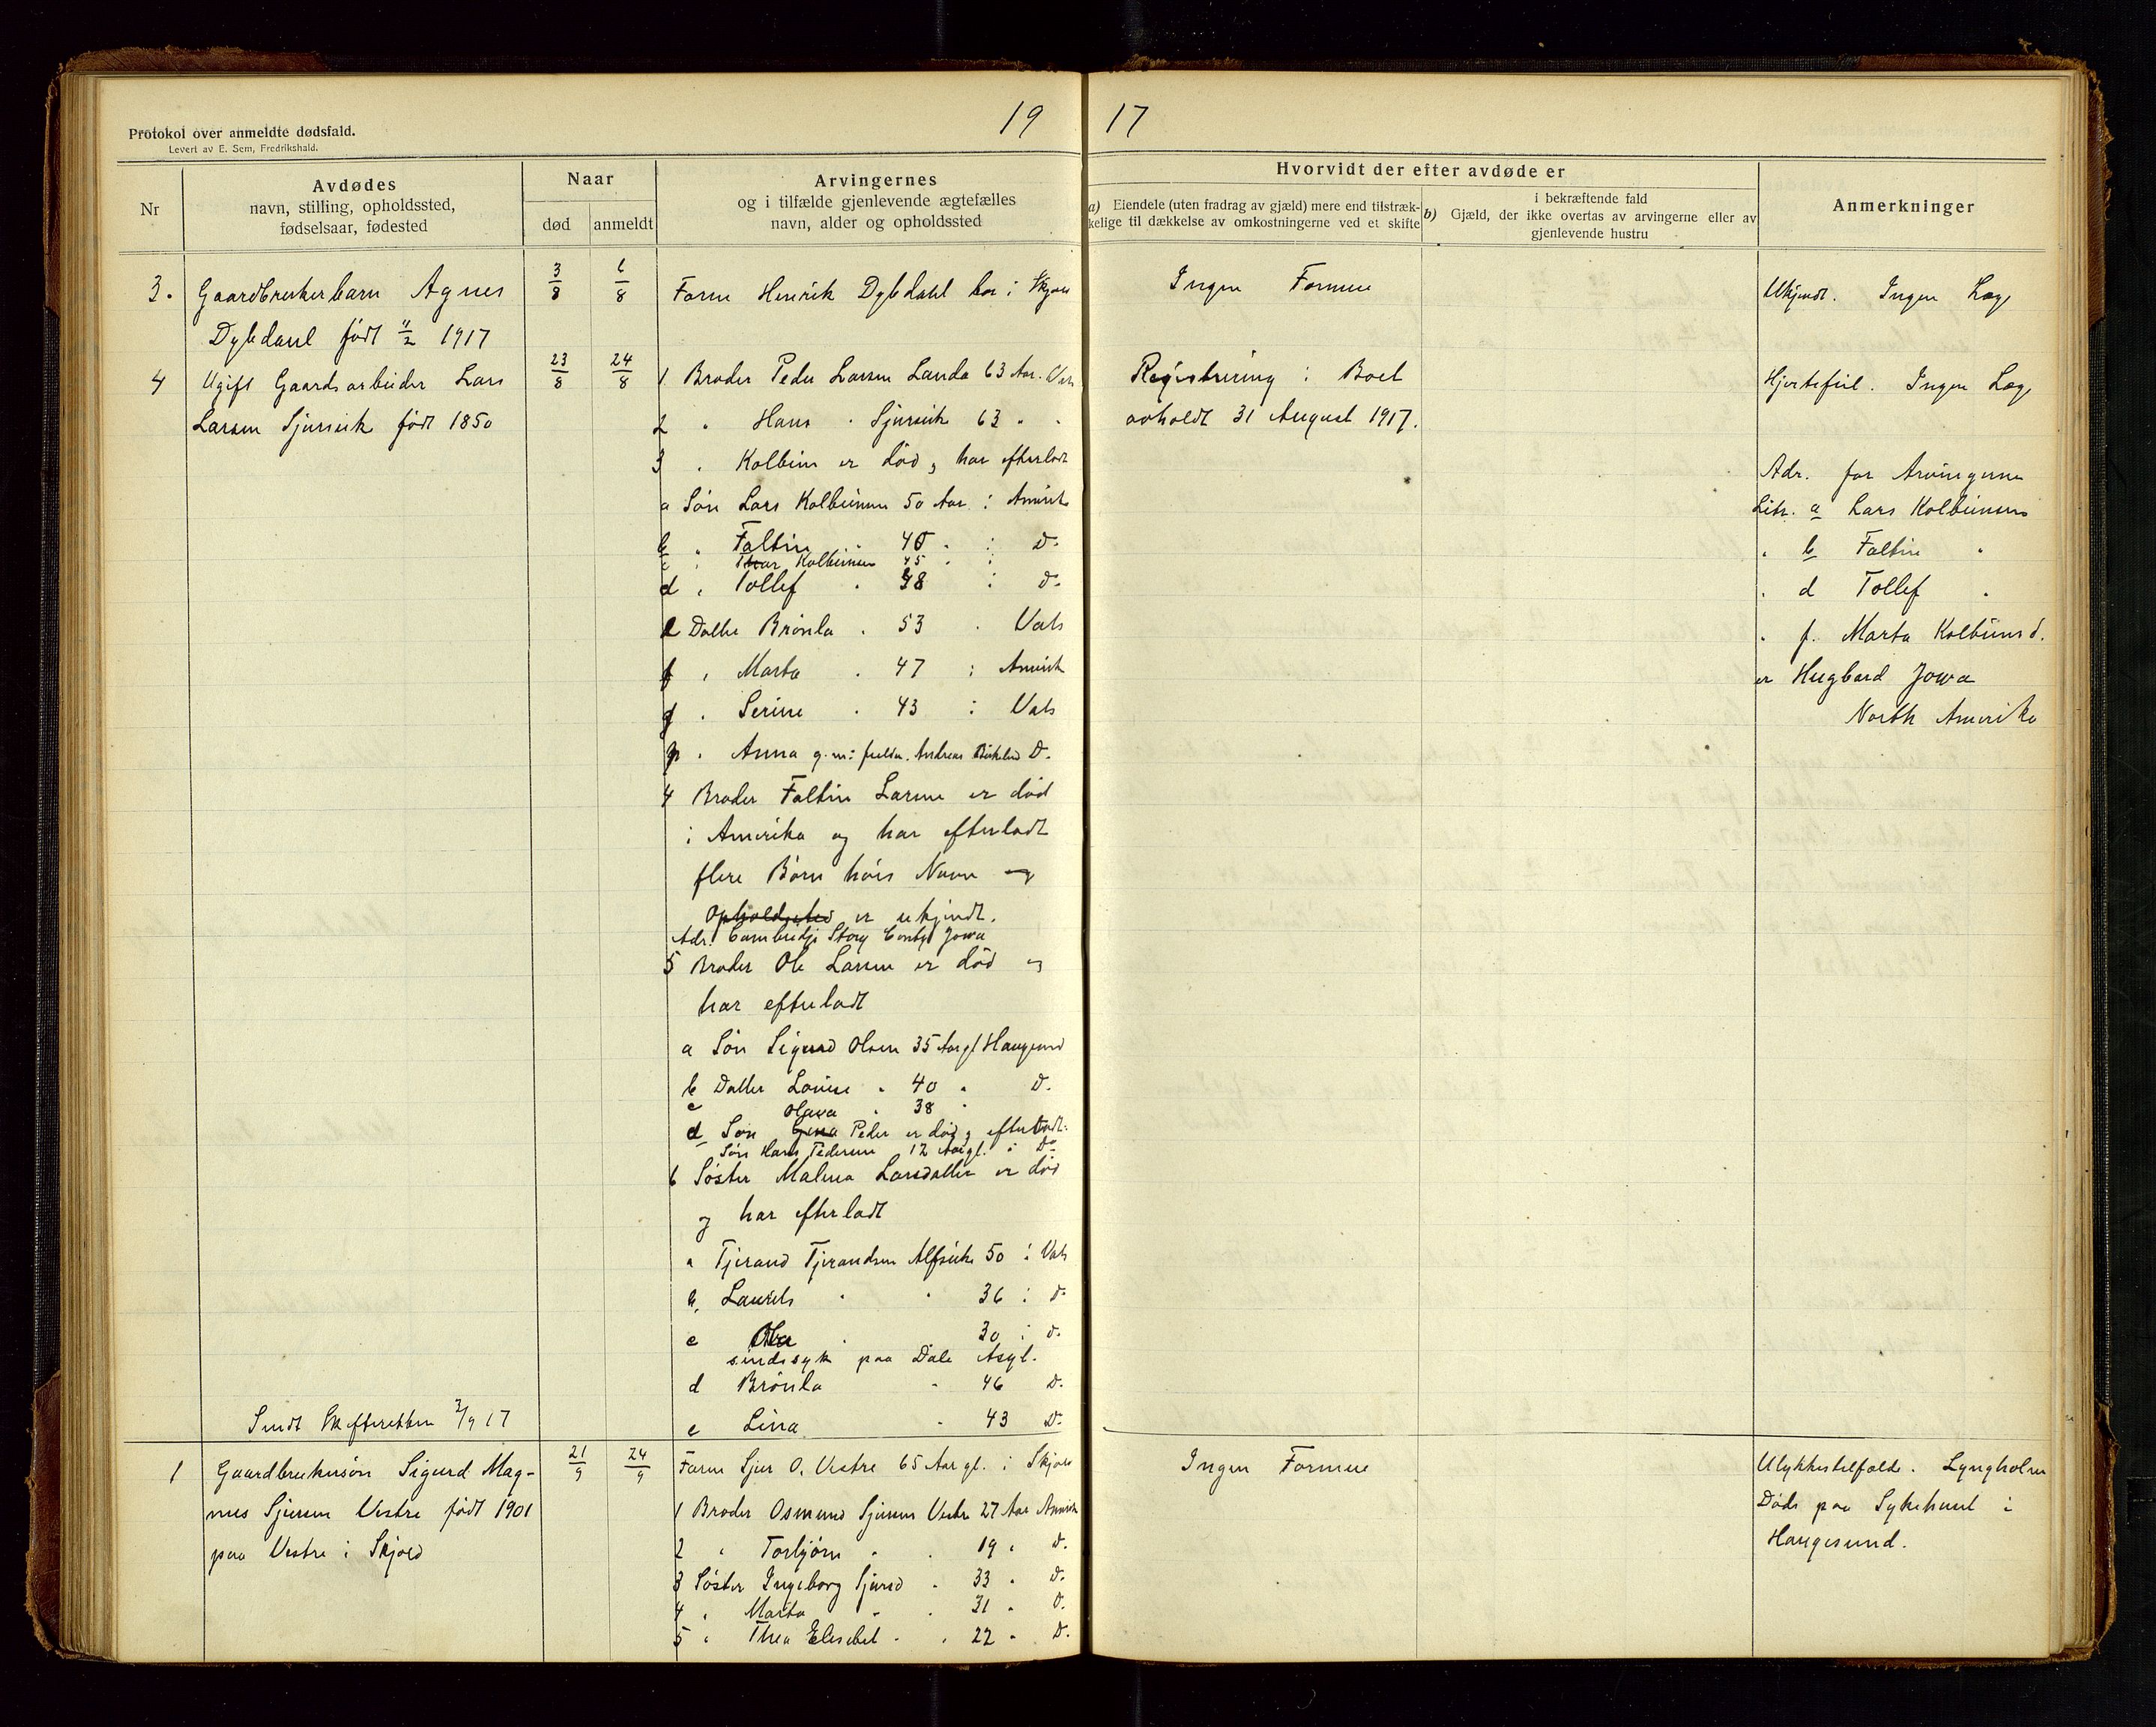 Protokol over anmeldte dødsfald.
Levert av E. Sem, Fredrikshald.
19 17
Nr
Avdødes
navn, stilling, opholdssted,
fødselsaar, fødested
Naar
død anmeldt
Arvingernes
og i tilfælde gjenlevende ægtefælles
navn, alder og opholdssted
Hvorvidt der efter avdøde er
a) Eiendele (uten fradrag av gjæld) mere end tilstræk-
kelige til dækkelse av omkostningerne ved et skifte
i bekræftende fald
b) Gjæld, der ikke overtas av arvingerne eller av
gjenlevende hustru
Anmerkninger
3. Gaardbrukerbarn Agnes
Dybdahl født 11/2 1917
3/8 6/8
Farm Henrik Dybdahl bor i Skjold
Ingen Formue
Ukjendt. Ingen Læge
4 Ugift Gaardsarbeider Lars
Larsen Sjursvik født 1850
23/8 24/8
1 Broder Peder Larsen Landa 63 Aar. Vats
2 " Hans " Sjursvik 63 " "
3 " Kolbein er død og har efterladt
a Søn Lars Kolbeinsen 50 Aar i Amerik
b " Faltin " 40 " i D.
c " Kolbeinsen 45 " i
d " Tollef " 38 i D.
e Datter Brönla " 53 " Vats
f " Marta " 47 i Amerik
g " Serine " 43 i Vats
h " Anna g. m. Andreas D.
4 Broder Faltin Larsen er død
i Amerika og har efterladt
flere Børn hvis Navn og
Opholdssted er ukjendt.
Adr. Cambridje Story Conty Jowa
5 Broder Ole Larsen er død og
har efterladt
a Søn Sigurd Olsen 35 Aar gl Haugesund
b Datter Lovise " 40 " D.
c Olava " 38 "
d Søn Peder er død og efterladt:
Søn Hans Pedersen 12 Aar gl. i Do
6 Søster Malena Larsdatter er død
og har efterladt
a Tjerand Tjerandsen Alfsvik 50 i Vats
b. Laurits " " 36 i D.
c Ola " 30 i D.
sindssyk paa Dale Asyl.
d Brönla " 46 D.
e Lina " 43 D.
Registrering i Boet
avholdt 31 August 1917.
Hjertefeil. Ingen Læge
Adr. for Arvingerne
Litr. a Lars Kolbeinsen
" b Faltin "
" d Tollef "
" f. Marta Kolbeinsd.
er Hugbard Jowa
North Amerika
Sendt Skifteretten 3/9 17
1 Gaardbrukersøn Sigurd Mag-
nus Sjursen Vestre født 1901
paa Vestre i Skjold
21/9 24/9
Farm Sjur O. Vestre 65 Aar gl. i Skjold
1 Broder Osmund Sjursen Vestre 27 Aar Amerik
2 " Torbjørn " " 19 " D.
3 Søster Ingeborg Sjursd " 33 " D.
4 " Marta " " 31 " D.
5 " Thea Elisabet " " 22 " D.
Ingen Formue
Ulykkestilfælde. Lyngholm
Døde paa Sykehuset i
Haugesund.